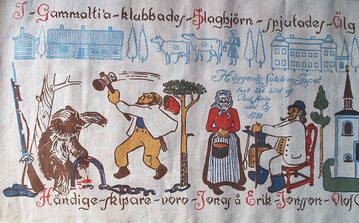 I-Gammalti'a-klubbades-Slagbjörn-spjutades-Älg
Häggenås Sokken-Tapet
1981
Händige-skipare-voro-Jonas & Erik-Jonsson-Olof